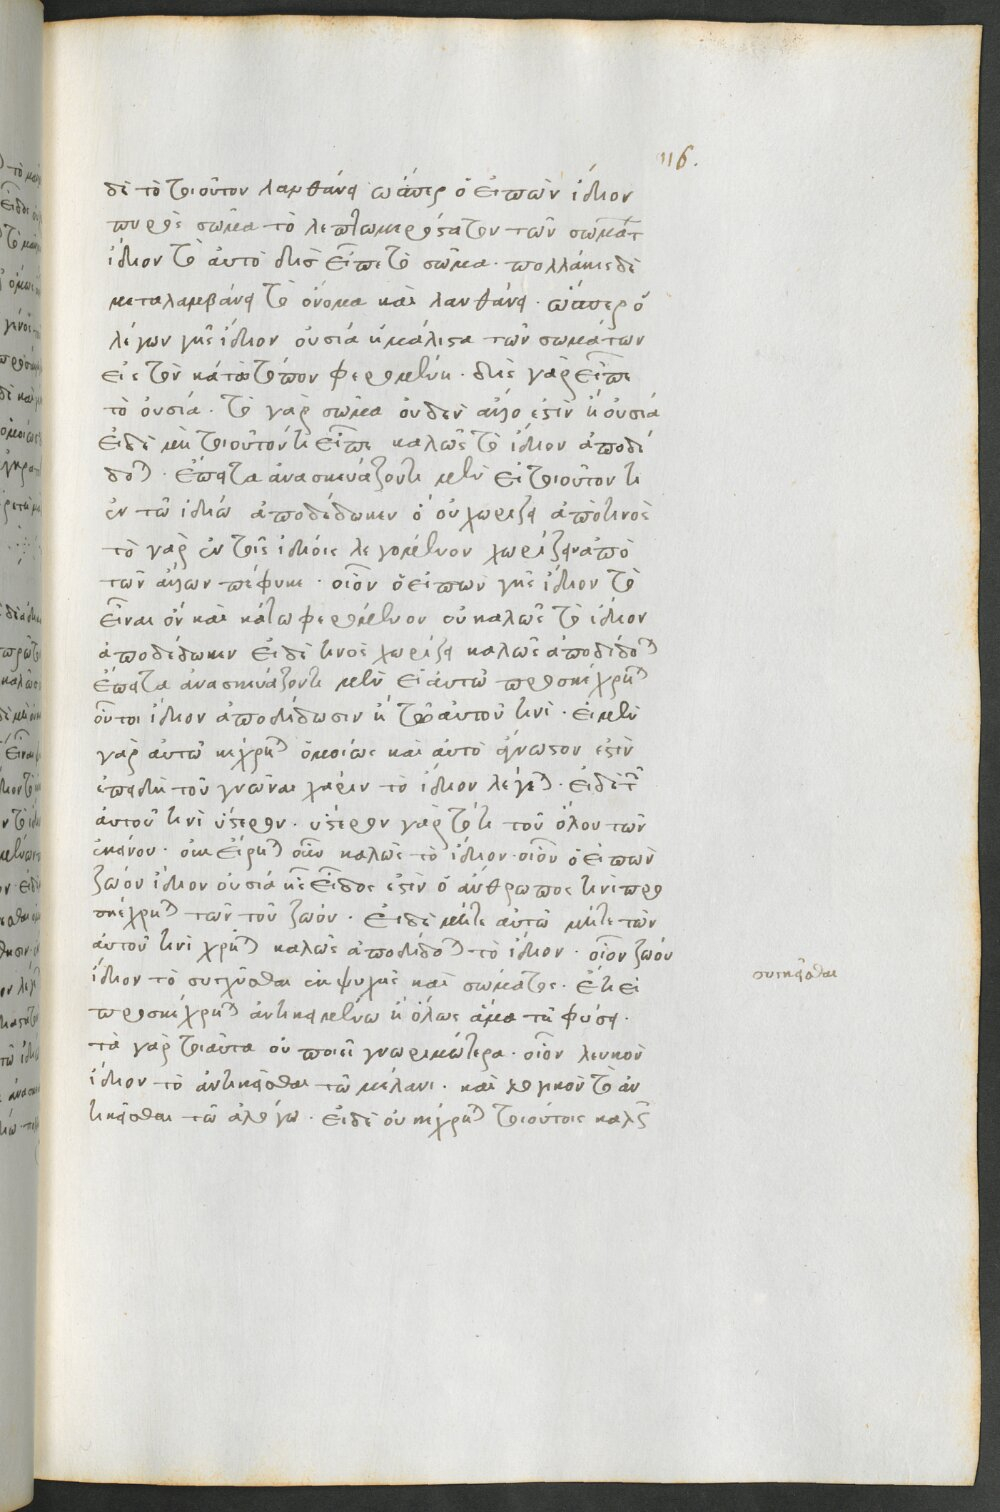 116.
δὲ τὸ τοιοῦτον λανθάνει ὥσπερ ὁ εἰπὼν ἴδιον
πυρὸς σῶμα τὸ λεπτομερέστατον τῶν σωμάτ
ἴδιον τὸ αὐτὸ δὶς εἶπε τὸ σῶμα · πολλάκις δὲ
μεταλαμβάνει τὸ ὄνομα καὶ λανθάνει · ὥσπερ ὁ
λέγων γῆς ἴδιον οὐσία ἡ μάλιστα τῶν σωμάτων
εἰς τὸν κάτω τόπον φερομένη · δὶς γὰρ εἶπε
τὸ οὐσία · τὸ γὰρ σῶμα οὐδὲν ἄλλο ἐστὶν ἢ οὐσία
εἰ δὲ μὴ τοιοῦτόν τι εἶπε καλῶς τὸ ἴδιον ἀποδί
δο · ἔπειτα ἀνασκευάζοντι μὲν εἰ τοιοῦτόν τι
ἐν τῷ ἰδίῳ ἀποδέδωκεν ὃ οὐ χωρίζει ἀπό τινος
τὸ γὰρ ἐν τοῖς ἰδίοις λεγομένον χωρίζειν ἀπὸ
τῶν ἄλλων πέφυκε · οἷον ὁ εἰπὼν γῆς ἴδιον τὸ
εἶναι ὂν καὶ κάτω φερόμενον οὐ καλῶς τὸ ἴδιον
ἀποδέδωκεν εἰ δέ τινος χωρίζει καλῶς ἀποδίδο
ἔπειτα ἀνασκευάζοντι μὲν εἰ αὐτῷ προσκέχρη
οὗτοι ἴδιον ἀποδίδωσιν ἢ τῶ αὐτοῦ τινὶ · εἰ μὲν
γὰρ αὐτῷ κέχρη ὁμοίως καὶ αὐτὸ ἄγνωστον ἐστὶν
ἐπειδὴ τοῦ γνῶναι χάριν τὸ ἴδιον λέγε · εἰ δὲ τ
αὐτοῦ τινὶ ὕστερον · ὕστερον γὰρ τό τι τοῦ ὅλου τῶν
ἐκείνου · οὐκ εἴρη οὖν καλῶς τὸ ἴδιον · οἷον ὁ εἰπὼν
ζῷον ἴδιον οὐσία ἧς εἶδος ἐστὶν ὁ ἄνθρωπος τινὶ προ
σκέχρη τῶν τοῦ ζῴου · εἰ δὲ μήτε αὐτῷ μήτε τῶν
αὐτοῦ τινὶ χρῆ καλῶς ἀποδίδο τὸ ἴδιον · οἷον ζῴου
ἴδιον τὸ συγκεῖσθαι ἐκ ψυχῆς καὶ σώματος · ἔτι εἰ
προσκέχρη ἀντικειμένῳ ἢ ὅλως ἅμα τῇ φύσει ·
τὰ γὰρ τοιαῦτα οὐ ποιεῖ γνωριμώτερα · οἷον λευκοῦ
ἴδιον τὸ ἀντικεῖσθαι τῷ μέλανι · καὶ λογικοῦ τὸ ἀν
τικεῖσθαι τῷ ἀλόγῳ · εἰ δὲ οὐ κέχρη τοιούτοις καλῶς
συγκεῖσθαι